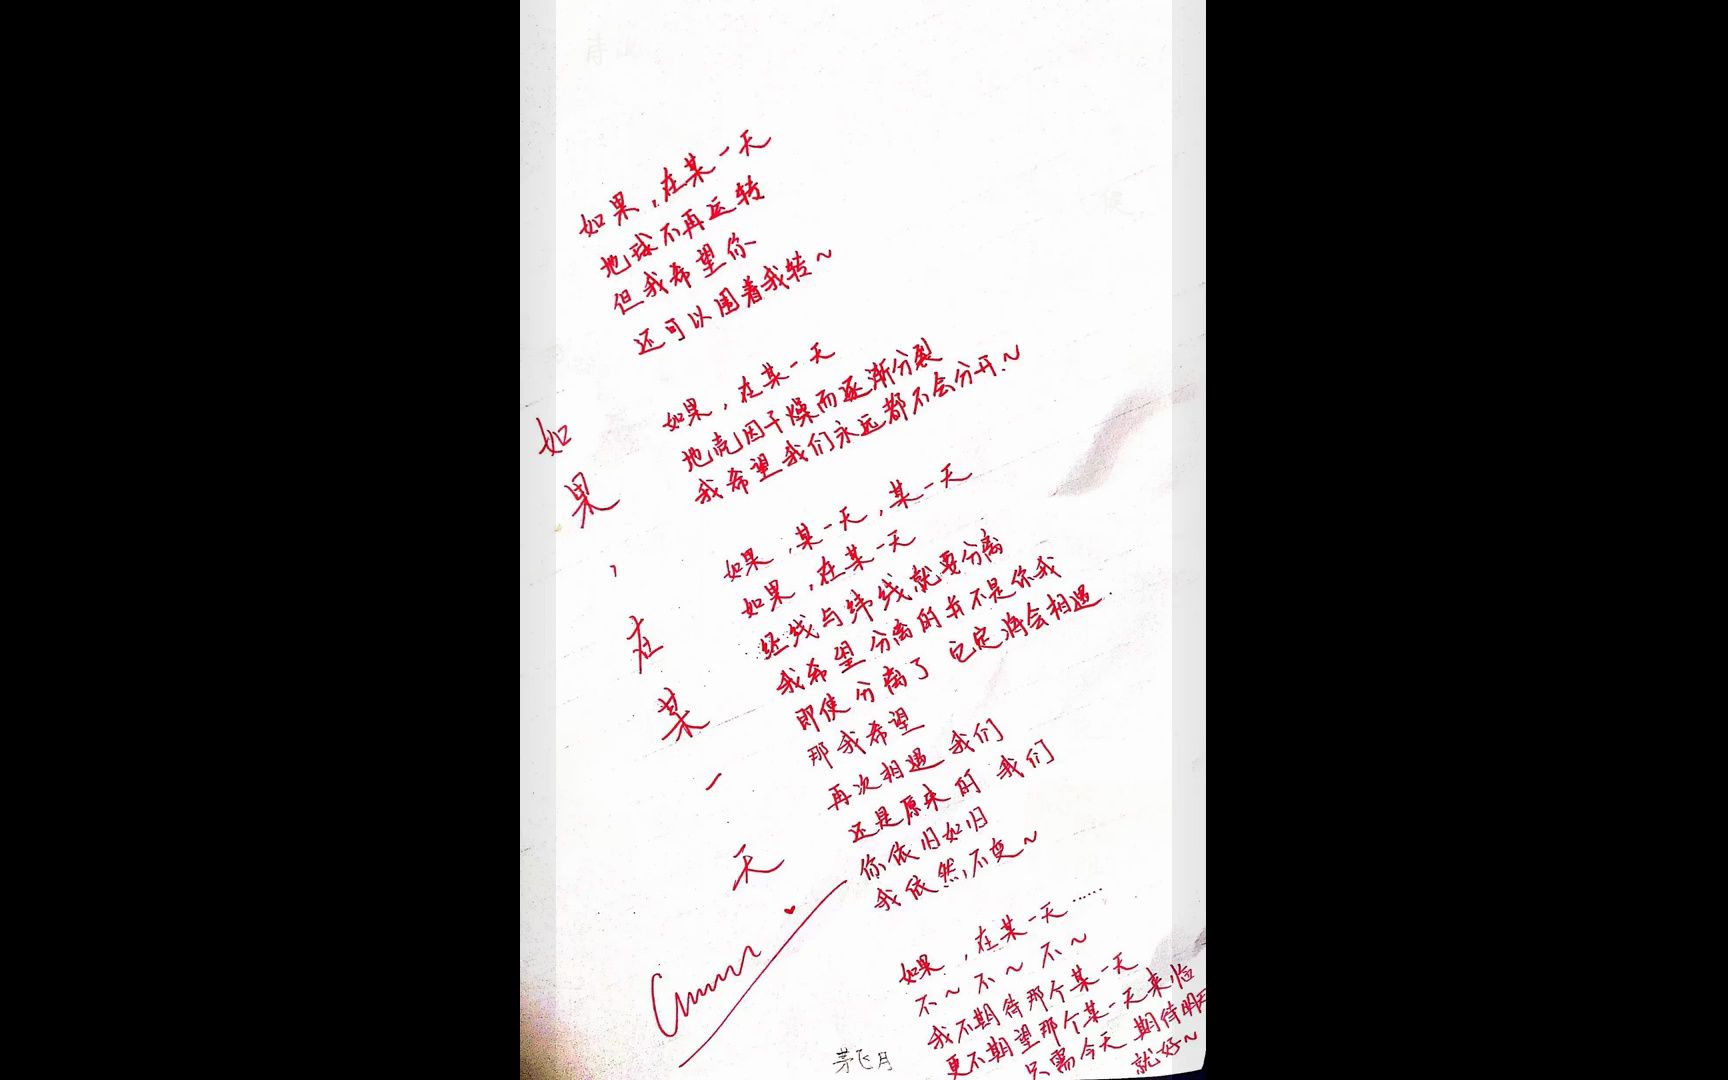 如果，在某一天
如果，在某一天
地球不再运转
但我希望你
还可以围着我转～
如果，在某一天
地壳因干燥而逐渐分裂
我希望我们永远都不会分开.～
如果，某一天，某一天
如果，在某一天
经线与纬线就要分离
我希望分离的并不是你我
即使分离了 它定将会相遇
那我希望
再次相遇 我们
还是原来的 我们
你依旧如旧
我依然,不变～
如果，在某一天……
不～不～不～
我不期待那个某一天
更不期望那个某一天来临
只需今天 期待明天
就好～
茅飞月